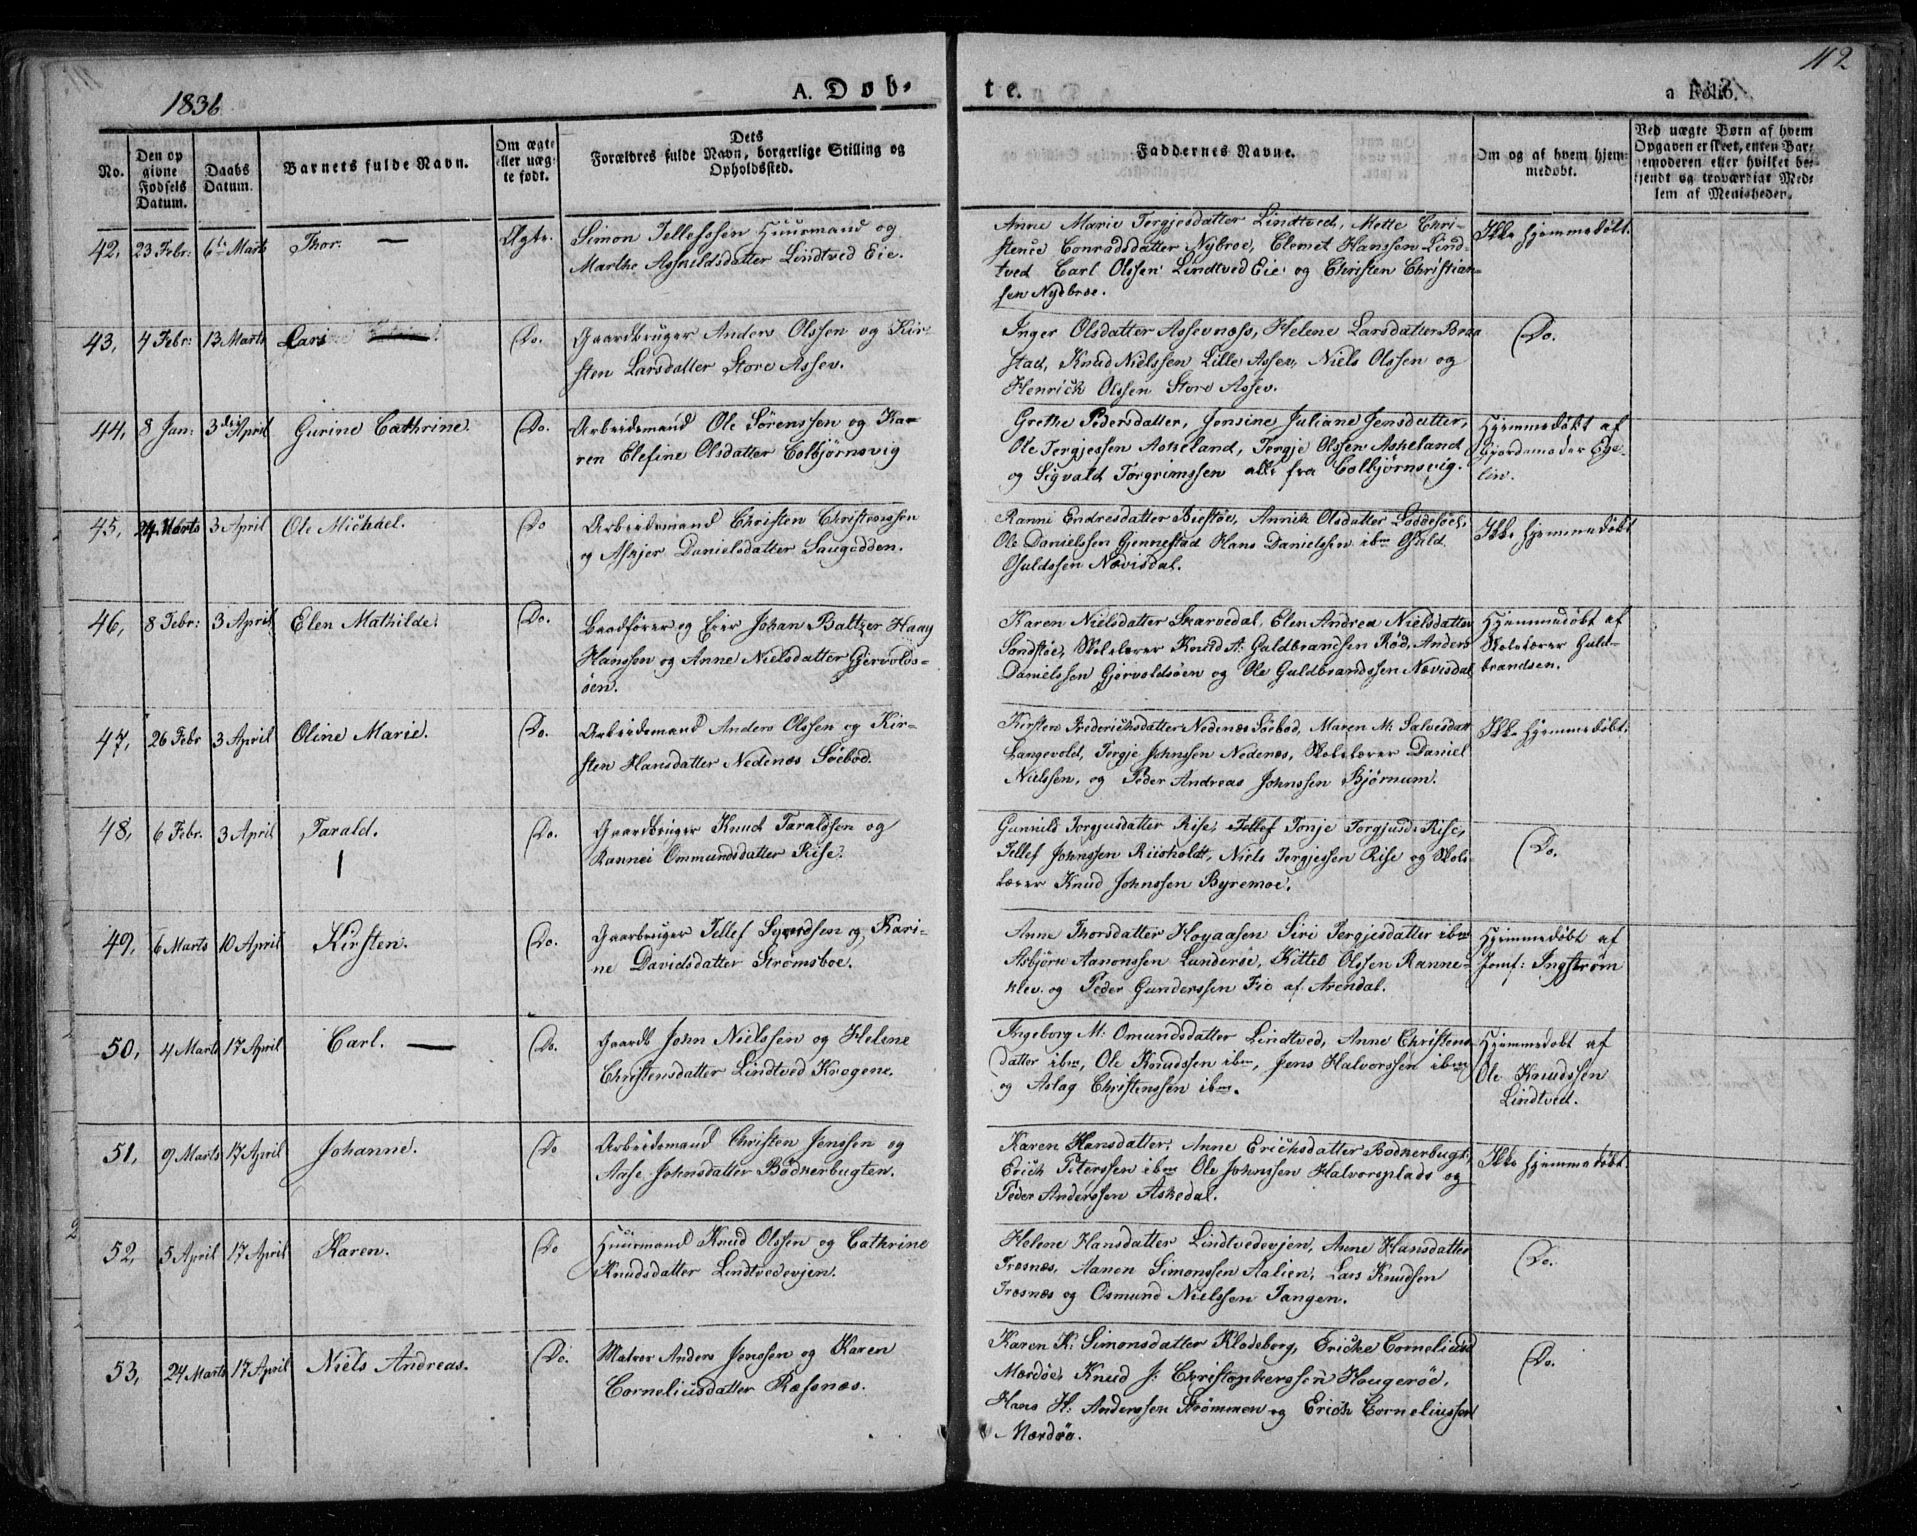 1836
A. Døb-
te.
a Folio.
112
No.
Den op
givne
Fødsels
Datum.
Daabs
Datum.
Barnets fulde Navn.
Om ægte
eller uæg-
te født.
Dets
Forældres fulde Navn, borgerlige Stilling og
Opholdssted.
Faddernes Navne.
Om og af hvem hjem-
medøbt.
Ved uægte Børn af hvem
Opgaven er skeet, enten Bar-
nemoderen eller hvilket be-
kjendt og troværdigt Med-
lem af Menigheden.
42, 23 Febr: 6te Marts Thor. — Ægte.
Simon Tellefssen Huurmand og
Marthe Asnildsdatter Lindtved Eie.
Anne Marie Tergjesdatter Lindtved, Mette Chri-
stence Conradsdatter Nybroe, Clemet Hansen Lind-
tved Carl Olssen Lindtved Eie og Christen Christian-
sen Nydbroe.
Ikke hjemmedøbt.
43, 4 Febr: 13 Marts Lars Do.
Gaardbruger Anders Olssen og Kir-
sten Larsdatter Store Assev.
Inger Olsdatter Assevnæss, Helene Larsdatter Braa
stad, Knud Nielssen Lille Assev, Niels Olssen og
Henrich Olssen Store Assev.
Do.
44, 8 Jan: 3die April Gurine Cathrine. Do.
Arbeidsmand Ole Sörenssen og Ka-
ren Elefine Olsdatter Colbjørnsvig
Grethe Pedersdatter, Jensine Juliane Jensdatter,
Ole Tergjessen Askeland, Tergje Olssen Askeland
og Sigvald Torgrimssen alle fra Colbjørnsvig.
Hjemmedøbt af
Gjordemoder Ege-
lin.
45, 24 Marts 3 April Ole Michael. Do
Arbeidsmand Christen Christenssen
og Askjer Danielsdatter Saugodden.
Ranni Endresdatter Biestøe, Annich Olsdatter Loddesöel,
Ole Danielssen Gjennestad Hans Danielssen ibm Osuld
Osuldssen Nævisdal.
Ikke hjemmedøbt
46, 8 Febr: 3 April Elen Mathilde. Do.
Baadfører og Eier Johan Baltzer Haag
Hanssen og Anne Nielsdatter Gjervolds-
øen.
Karen Nielsdatter Skarvedal, Elen Andrea Nielsdatter
Sandstøe, Skolelærer Knud A: Guldbrandsen Rød, Anders
Danielssen Gjervoldsöen og Ole Guldbrandssen Nævisdal
Hjemmedøbt af
Skolelærer Guld-
brandsen.
47, 26 Febr 3 April Oline Marie. Do.
Arbeidsmand Anders Olssen og Kir-
sten Hansdatter Nedenæs Söebod.
Kirsten Frederichsdatter Nedenæs Söebod, Maren M: Salvesdatt
Langevold, Tergje Johnssen Nedenæs, Skolelærer Daniel
Nielssen, og Peder Andreas Johnssen Bjørnum.
Ikke hjemmedøbt.
48, 6 Febr. 3 April Tarald. Do.
Gaardbruger Knud Taraldsen og
Rannei Ommundsdatter Rise.
Gunnild Torgjusdatter Rise, Tellef Tonje Torgjusd: Rise,
Tellef Johnssen Riisholdt, Niels Tergjessen Rise og Skole-
lærer Knud Johnssen Byremoe.
Do.
49, 6 Marts 10 April Kirsten. Do.
Gaarbruger Tellef Syvrdsen og Kari-
ne Davidsdatter Strømsboe.
Anne Thorsdatter Hoyaasen Siri Tergjesdatter ibm
Asbjörn Aanonssen Lunderöe, Kittel Olssen Ranne-
klev. og Peder Gunderssen Fie af Arendal.
Hjemmedøbt af
Jomf: Ingstrøm
50, 4 Marts 17 April Carl. — Do.
Gaardb John Nielssen og Helene
Christensdatter Lindtved Krogene.
Ingeborg M: Omundsdatter Lindtved, Anne Christens-
datter ibm, Ole Knudssen ibm, Jens Halvorssen ibm
og Aslag Christenssen ibm.
Hjemmedøbt af
Ole Knudssen
Lindtved.
51, 9 Marts 17 April Johanne. Do
Arbeidsmand Christen Jenssen og
Aase Johnsdatter Bødkerbugten.
Karen Hansdatter, Anne Erichsdatter Bødkerbugt,
Erich Peterssen ibm Ole Johnssen Halvorsplads og
Peder Anderssen Askedal.
Ikke hjemmedøbt.
52, 5 April 17 April Karen. Do
Huurmand Knud Olssen og Cathrine
Knudsdatter Lindtvedevjen.
Helene Hansdatter Lindtvedevjen, Anne Hansdatter
Træsnæs, Aanon Simonssen Aalien, Lars Knudsen
Træsnæs og Osmund Nielssen Tangen.
Do.
53, 24 Marts 17 April Niels Andreas. Do.
Matros Anders Jenssen og Karen
Corneliusdatter Ræfsnæs.
Karen K: Simonsdatter Klodeborg, Ericke Corneliusd
Mærdöe, Knud J: Christopherssen Hougeröe,
Hans H: Anderssen Strømmen og Erich Corneliussen
Mærdøe.
Do.